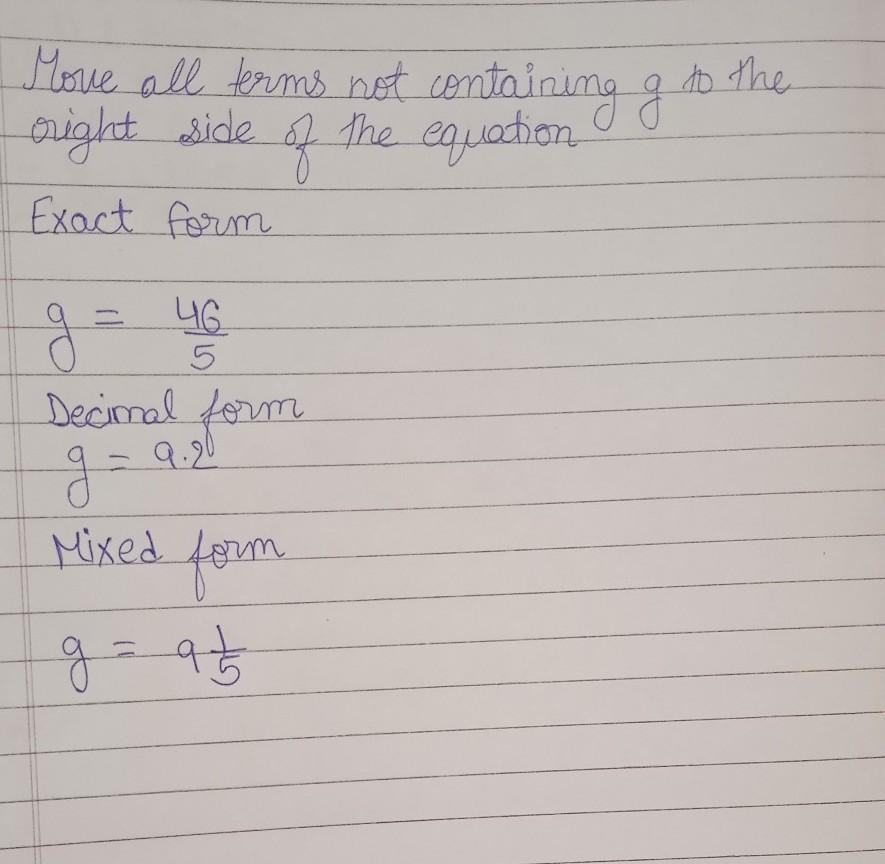 Move all terms not containing g to the
right side of the equation
Exact form
g = 46/5
Decimal form
g = 9.2
Mixed form
g = 9 1/5